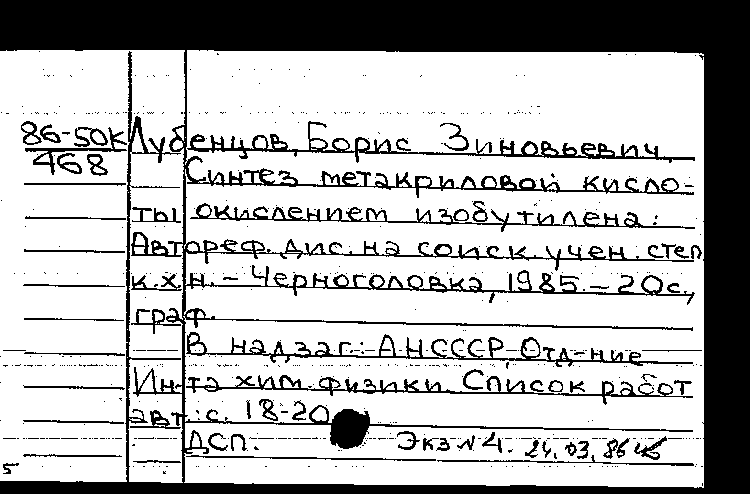 86-50К Лубенцов, Борис Зиновьевич.
468
Синтез метакриловой кисло-
ты окислением изобутилена:
Автореф. дис. на соиск. учен. степ
к.х.н. - Черноголовка, 1985. - 20с.,
граф.
В надзаг.: АН СССР, Отд-ние
Ин-та хим. физики. Список работ
авт.: с. 18-20
ДСП. Экз N 4. 24.03.86
5